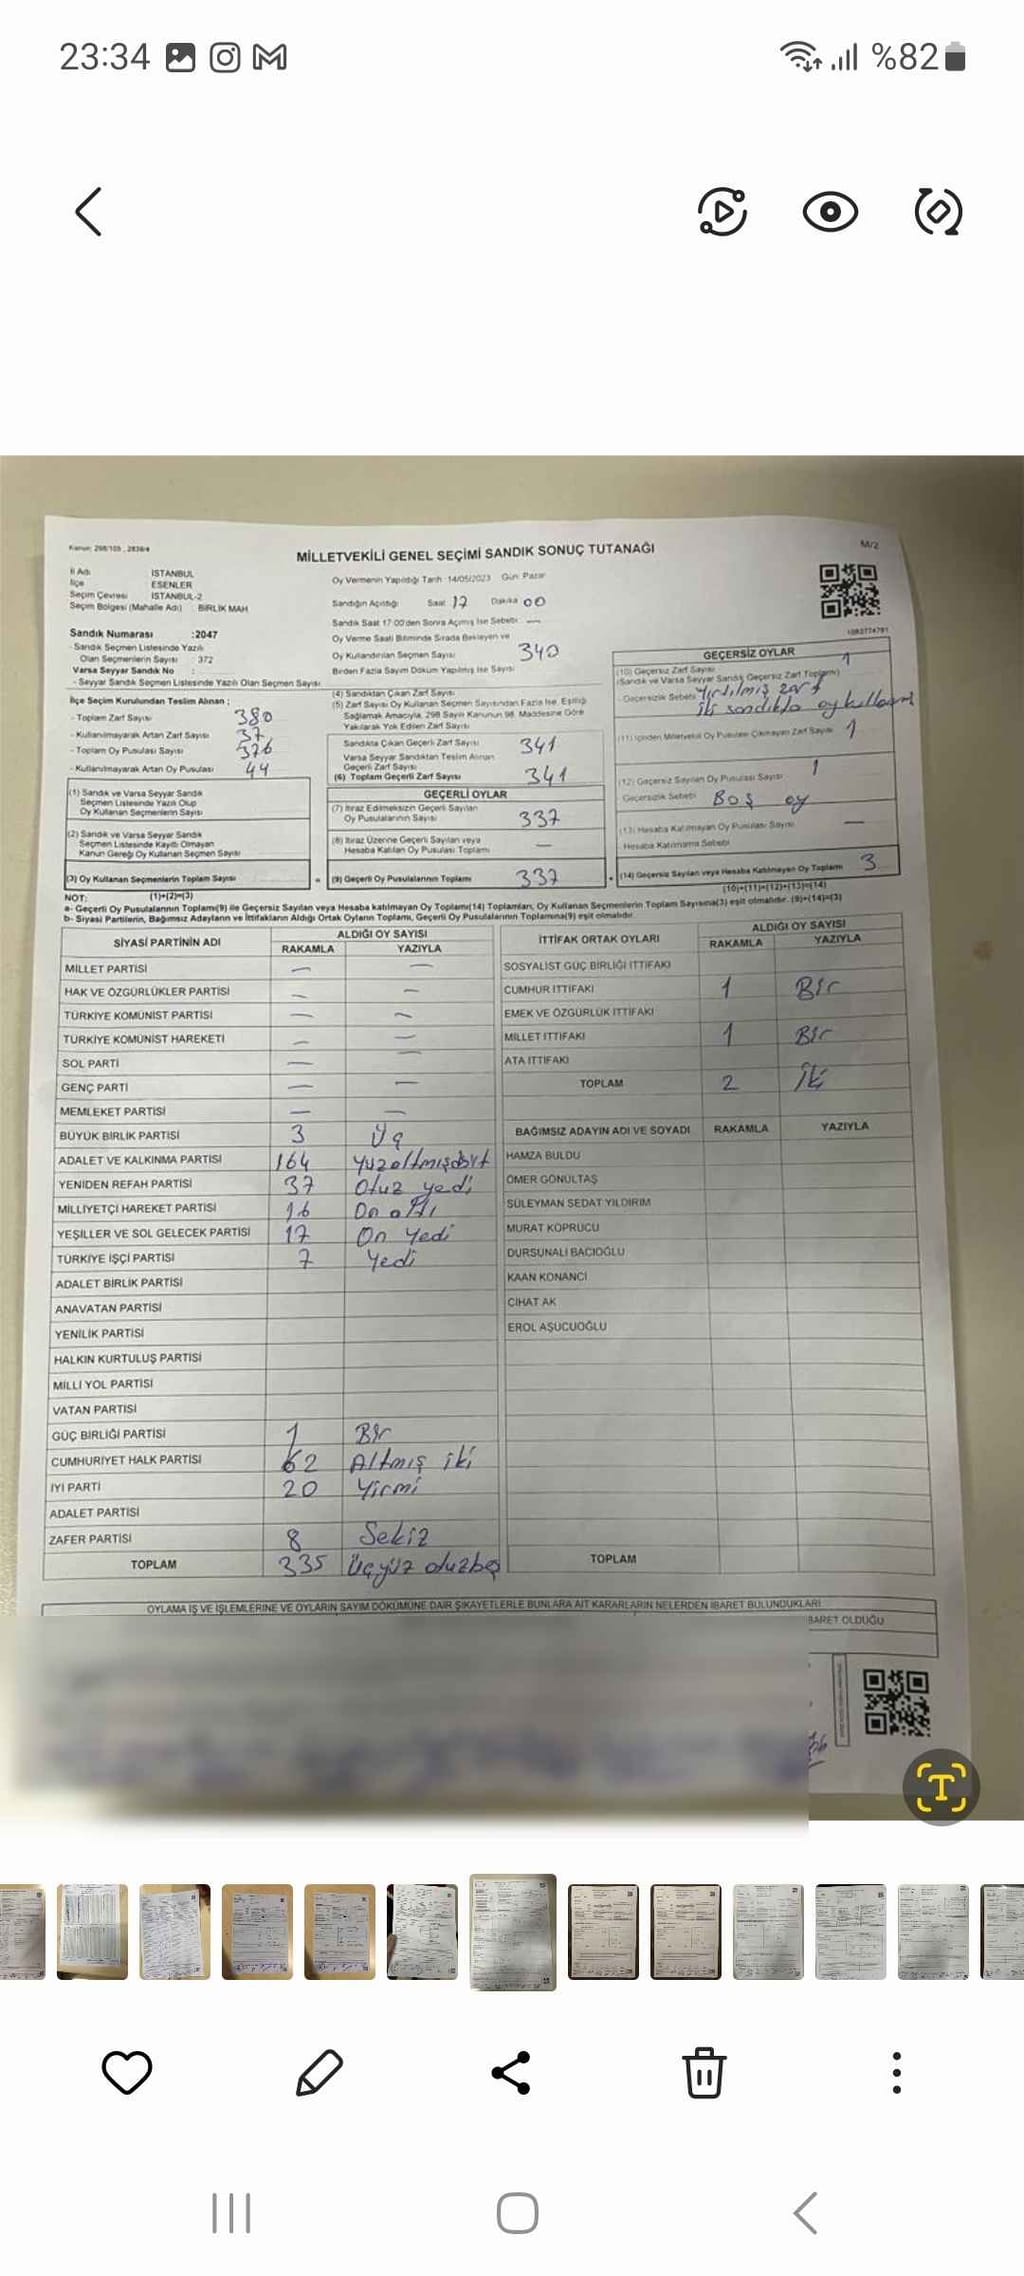 23:34
%82
Kanun: 298/105 , 2839/4
M/2
MİLLETVEKİLİ GENEL SEÇİMİ SANDIK SONUÇ TUTANAĞI
İl Adı İSTANBUL
İlçe ESENLER
Seçim Çevresi İSTANBUL-2
Seçim Bölgesi (Mahalle Adı) : BİRLİK MAH
Sandık Numarası :2047
- Sandık Seçmen Listesinde Yazılı
Olan Seçmenlerin Sayısı : 372
Varsa Seyyar Sandık No :
- Seyyar Sandık Seçmen Listesinde Yazılı Olan Seçmen Sayısı
İlçe Seçim Kurulundan Teslim Alınan ;
- Toplam Zarf Sayısı 380
- Kullanılmayarak Artan Zarf Sayısı 37
- Toplam Oy Pusulası Sayısı 376
- Kullanılmayarak Artan Oy Pusulası 44
(1) Sandık ve Varsa Seyyar Sandık
Seçmen Listesinde Yazılı Olup
Oy Kullanan Seçmenlerin Sayısı
(2) Sandık ve Varsa Seyyar Sandık
Seçmen Listesinde Kayıtlı Olmayan
Kanun Gereği Oy Kullanan Seçmen Sayısı
(3) Oy Kullanan Seçmenlerin Toplam Sayısı
Oy Vermenin Yapıldığı Tarih : 14/05/2023 Gün: Pazar
Sandığın Açıldığı Saat 17 Dakika 00
Sandık Saat 17:00'den Sonra Açılmış İse Sebebi: —
Oy Verme Saati Bitiminde Sırada Bekleyen ve
Oy Kullandırılan Seçmen Sayısı 340
Birden Fazla Sayım Döküm Yapılmış İse Sayısı
(4) Sandıktan Çıkan Zarf Sayısı
(5) Zarf Sayısı Oy Kullanan Seçmen Sayısından Fazla İse, Eşitliği
Sağlamak Amacıyla, 298 Sayılı Kanunun 98. Maddesine Göre
Yakılarak Yok Edilen Zarf Sayısı
Sandıkta Çıkan Geçerli Zarf Sayısı 341
Varsa Seyyar Sandıktan Teslim Alınan
Geçerli Zarf Sayısı
(6) Toplam Geçerli Zarf Sayısı 341
GEÇERLİ OYLAR
(7) İtiraz Edilmeksizin Geçerli Sayılan
Oy Pusulalarının Sayısı 337
(8) İtiraz Üzerine Geçerli Sayılan veya
Hesaba Katılan Oy Pusulası Toplamı —
= (9) Geçerli Oy Pusulalarının Toplamı 337
GEÇERSİZ OYLAR
(10) Geçersiz Zarf Sayısı 1
(Sandık ve Varsa Seyyar Sandık Geçersiz Zarf Toplamı)
Geçersizlik Sebebi Yırtılmış zarf
iki sandıkta oy kullanma
(11) İçinden Milletvekili Oy Pusulası Çıkmayan Zarf Sayısı 1
(12) Geçersiz Sayılan Oy Pusulası Sayısı 1
Geçersizlik Sebebi BOŞ oy
(13) Hesaba Katılmayan Oy Pusulası Sayısı —
Hesaba Katılmama Sebebi
+ (14) Geçersiz Sayılan veya Hesaba Katılmayan Oy Toplamı 3
NOT: (1)+(2)=(3) (10)+(11)+(12)+(13)=(14)
a- Geçerli Oy Pusulalarının Toplamı(9) ile Geçersiz Sayılan veya Hesaba katılmayan Oy Toplamı(14) Toplamları, Oy Kullanan Seçmenlerin Toplam Sayısına(3) eşit olmalıdır. (9)+(14)=(3)
b- Siyasi Partilerin, Bağımsız Adayların ve İttifakların Aldığı Ortak Oyların Toplamı, Geçerli Oy Pusulalarının Toplamına(9) eşit olmalıdır.
SİYASİ PARTİNİN ADI ALDIĞI OY SAYISI
RAKAMLA YAZIYLA
MİLLET PARTİSİ — —
HAK VE ÖZGÜRLÜKLER PARTİSİ — —
TÜRKİYE KOMÜNİST PARTİSİ — —
TÜRKİYE KOMÜNİST HAREKETİ — —
SOL PARTİ — —
GENÇ PARTİ — —
MEMLEKET PARTİSİ — —
BÜYÜK BİRLİK PARTİSİ 3 Üç
ADALET VE KALKINMA PARTİSİ 164 Yüzaltmışdört
YENİDEN REFAH PARTİSİ 37 Otuz yedi
MİLLİYETÇİ HAREKET PARTİSİ 16 On altı
YEŞİLLER VE SOL GELECEK PARTİSİ 17 On Yedi
TÜRKİYE İŞÇİ PARTİSİ 7 Yedi
ADALET BİRLİK PARTİSİ
ANAVATAN PARTİSİ
YENİLİK PARTİSİ
HALKIN KURTULUŞ PARTİSİ
MİLLİ YOL PARTİSİ
VATAN PARTİSİ
GÜÇ BİRLİĞİ PARTİSİ 1 Bir
CUMHURİYET HALK PARTİSİ 62 Altmış iki
İYİ PARTİ 20 Yirmi
ADALET PARTİSİ
ZAFER PARTİSİ 8 Sekiz
TOPLAM 335 Üçyüz otuzbeş
İTTİFAK ORTAK OYLARI ALDIĞI OY SAYISI
RAKAMLA YAZIYLA
SOSYALİST GÜÇ BİRLİĞİ İTTİFAKI
CUMHUR İTTİFAKI 1 Bir
EMEK VE ÖZGÜRLÜK İTTİFAKI
MİLLET İTTİFAKI 1 Bir
ATA İTTİFAKI
TOPLAM 2 İki
BAĞIMSIZ ADAYIN ADI VE SOYADI RAKAMLA YAZIYLA
HAMZA BULDU
ÖMER GÖNÜLTAŞ
SÜLEYMAN SEDAT YILDIRIM
MURAT KÖPRÜCÜ
DURSUNALİ BACIOĞLU
KAAN KONANCI
CİHAT AK
EROL AŞUCUOĞLU
TOPLAM
OYLAMA İŞ VE İŞLEMLERİNE VE OYLARIN SAYIM DÖKÜMÜNE DAİR ŞİKAYETLERLE BUNLARA AİT KARARLARIN NELERDEN İBARET BULUNDUKLARI
BARET OLDUĞU